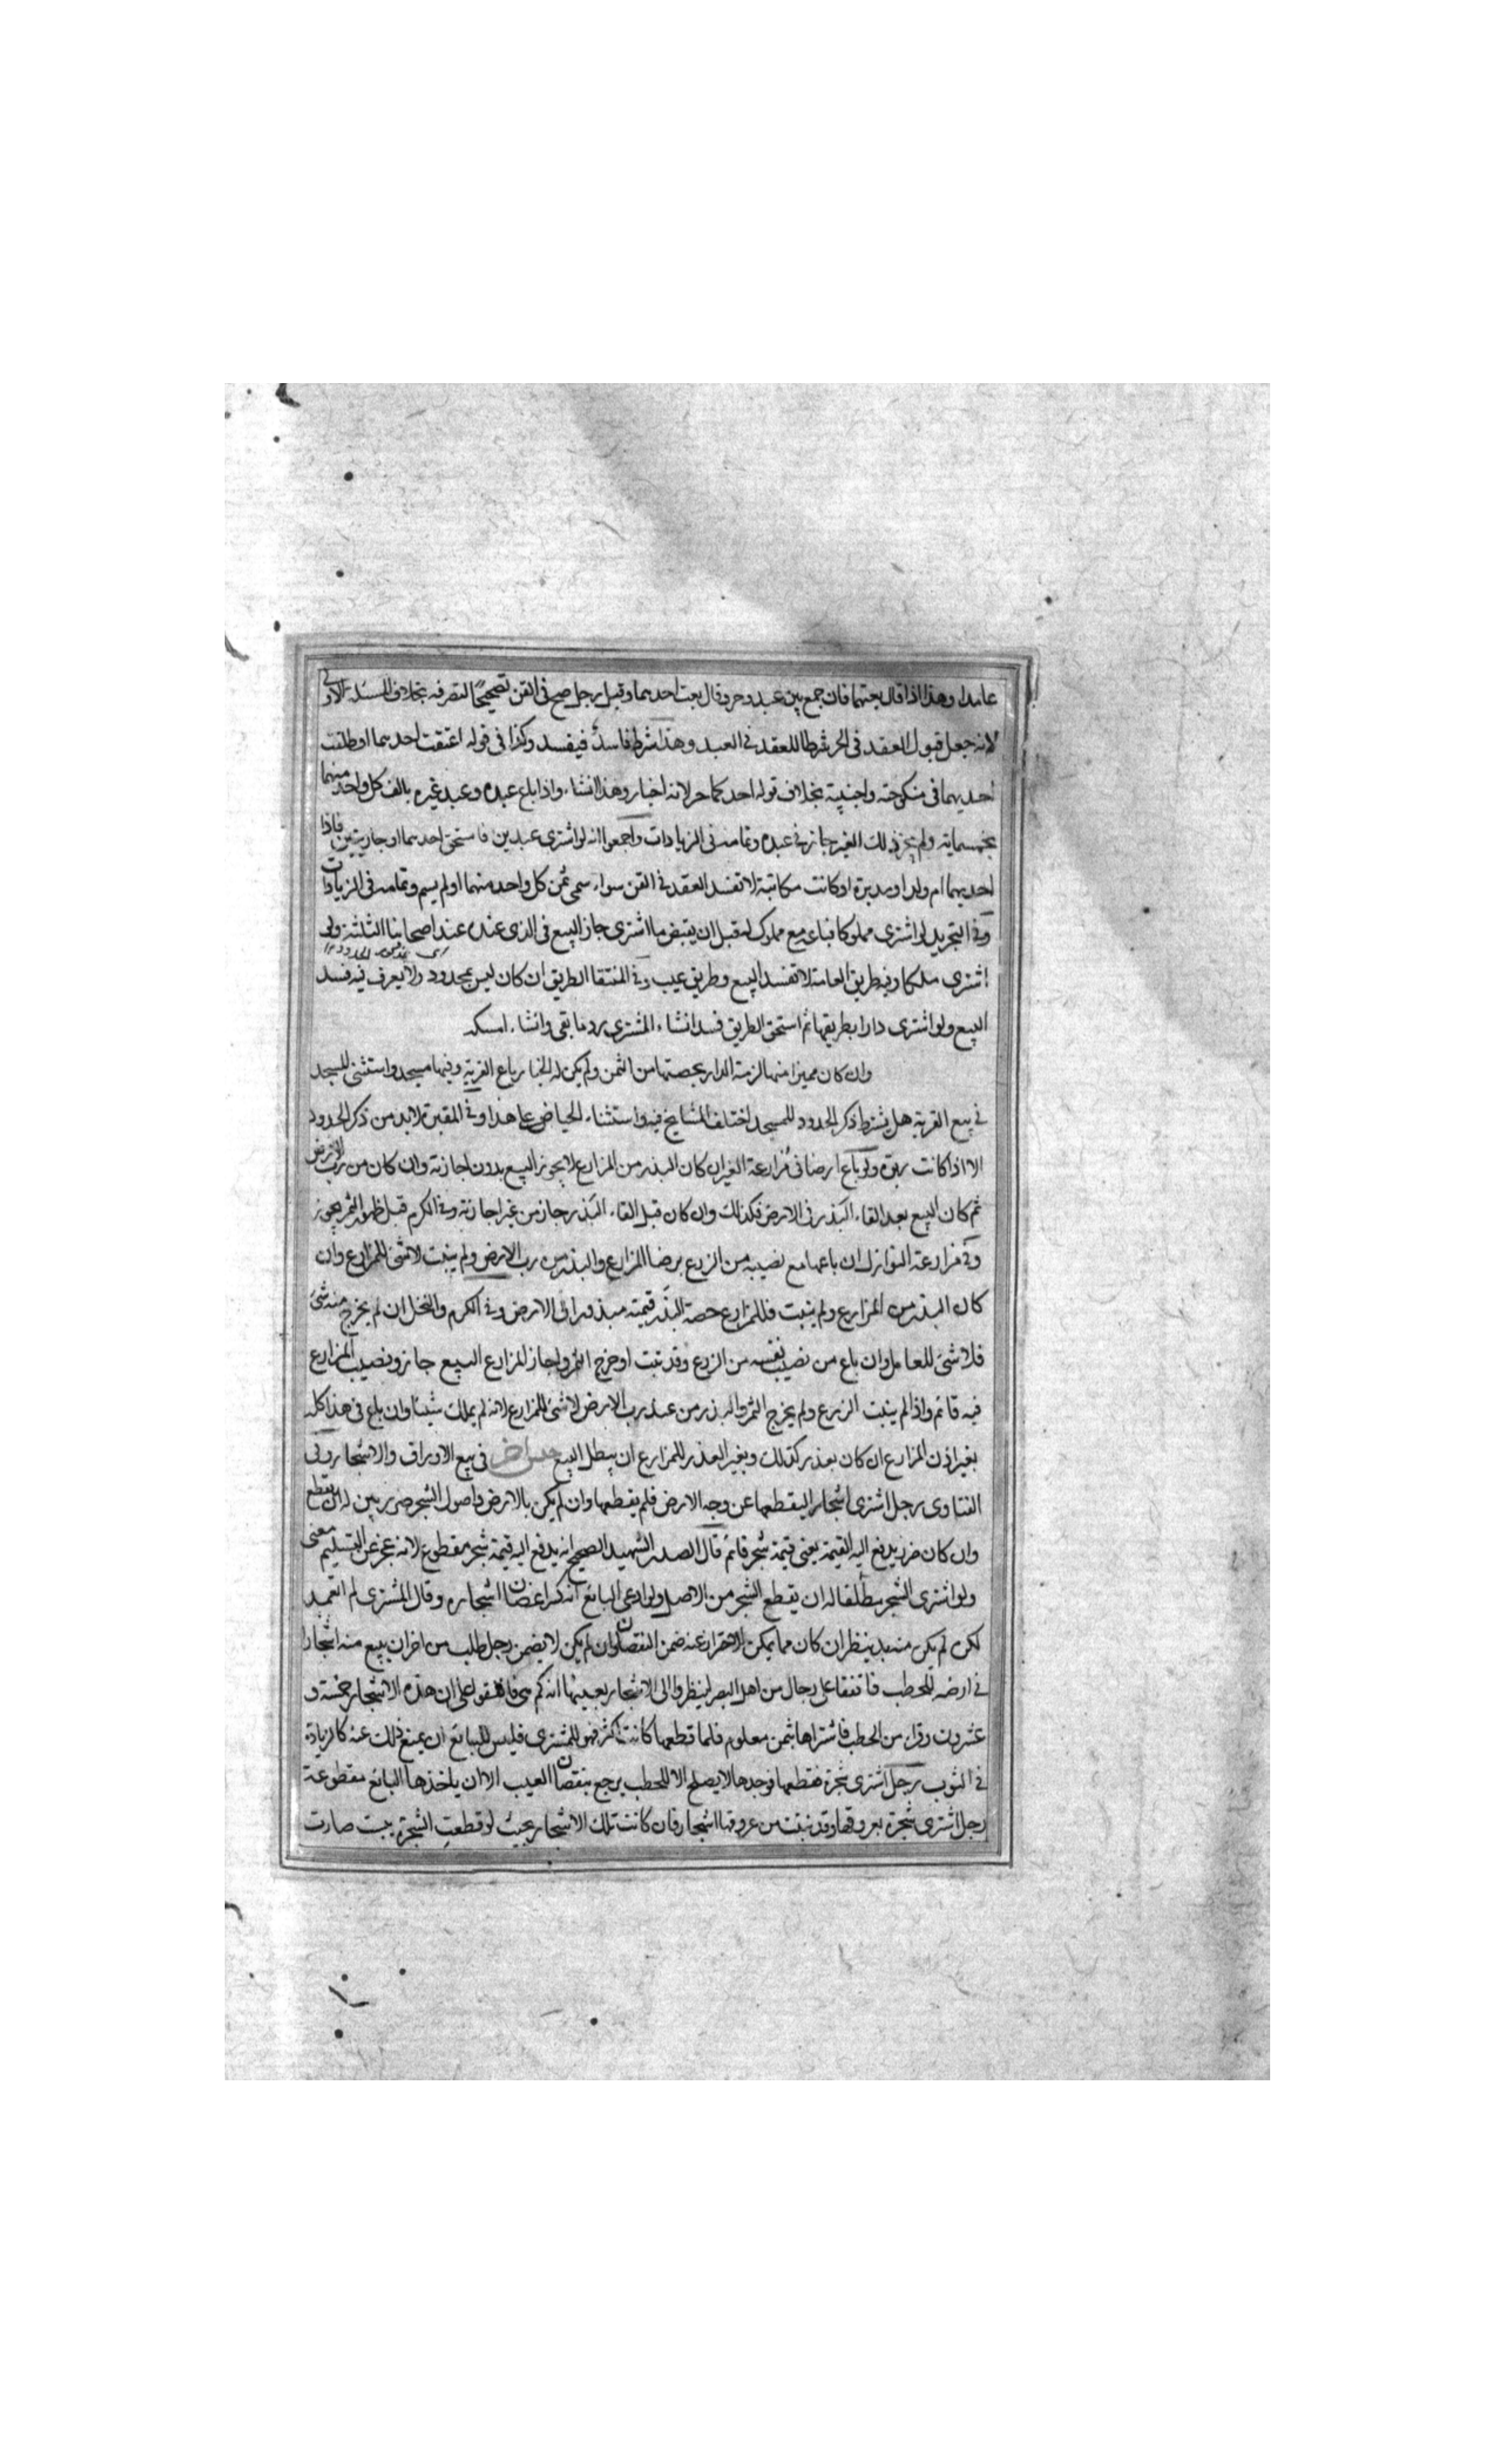 عامدا وهذا اذا قال بعتهما فان جمع بين عبد وحر وقال بعت احدهما وقبل رجل صح في القن تصحيحا لتصرفه بخلاف المسئلة الاولى
لانه جعل قبول العقد في الحر شرطا للعقد في العبد وهذا شرط فاسد فيفسد وكذا في قوله اعتقت احدهما او طلقت
احديهما في منكوحته واجنبية بخلاف قوله احدكما حر لانه اخبار وهذا انشاء واذا باع عبده وعبد غيره بالف كل واحد منهما
بخمسماية ولم يجز ذلك الغير جاز في عبده وتمامه في الزيادات واجمعوا انه لو اشترى عبدين فاستحق احدهما او جاريتين فاذا
احديهما ام ولد او مدبرة او كانت مكاتبة لا تفسد العقد في القن سواء سمى ثمن كل واحد منهما او لم يسم وتمامه في الزيادات
وفي التجريد لو اشترى مملوكا فباعه مع مملوك له قبل ان يقبض ما اشترى جاز البيع في الذي عنده عند اصحابنا الثلثة ولو
اشترى ملكا وفيه طريق العامة لا تفسد البيع وطريق عيب وفي المنتقا الطريق ان كان ليس بمحدود ولا يعرف فيه فسد
البيع ولو اشترى دارا بطريقها ثم استحق الطريق فسد انشاء المشترى رد ما بقى وانشاء امسكه
وان كان مميزا منها لزمته الدار بحصتها من الثمن ولم يكن له الخيار باع القرية وفيها مسجد واستثنى المسجد
في بيع القرية هل يشترط ذكر الحدود للمسجد اختلف المشايخ فيه واستثناء الحياض على هذا وفي المقبرة لابد من ذكر الحدود
الا اذا كانت ربوة ولو باع ارضا في مزارعة الغير ان كان البذر من المزارع لا يجوز البيع بدون اجازته وان كان من رب الارض
ثم كان البيع بعد القاء البذر في الارض فكذلك وان كان قبل القاء البذر جاز من غير اجازته وفي الكرم قبل ظهور الثمر يجوز
وفي مزارعة النوازل ان باعها مع نصيبه من الزرع برضا المزارع والبذر من رب الارض ولم ينبت لا شئ للمزارع وان
كان البذر من المزارع ولم ينبت فللمزارع حصة البذر قيمته مبذورا في الارض وفي الكرم والنخل ان لم يخرج منه شئ
فلا شئ للعامل وان باع من نصيب نفسه من الزرع وقد نبت او خرج الثمر واجاز المزارع البيع جاز ونصيب المزارع
فيه قائم واذا لم ينبت الزرع ولم يخرج الثمر والبذر من عند رب الارض لا شئ للمزارع لانه لم يملك شيئا وان باع في هذا كله
بغير اذن المزارع ان كان بعذر كذلك وبغير العذر للمزارع ان يبطل البيع جنس اخر في بيع الاوراق والاشجار وفي
الفتاوى رجل اشترى اشجارا ليقطعها عن وجه الارض فلم يقطعها وان لم يكن بالارض واصول الشجر ضرر بين له ان يقطع
وان كان ضرر يدفع اليه القيمة يعنى قيمة شجر قائم قال الصدر الشهيد الصحيح انه يدفع اليه قيمة شجر مقطوع لانه عجز عن التسليم معنى
ولو اشترى الشجر مطلقا له ان يقطع الشجر من الاصل ولو ادعى البائع انه كسر اغصان اشجاره وقال المشترى لم اتعمد
لكن لم يكن منه بد ينظر ان كان مما يمكن الاحتراز عنه ضمن النقصان وان لم يكن لا يضمن رجل طلب من اخر ان يبيع منه اشجارا
في ارضه للحطب فاتفقا على رجال من اهل البصر لينظروا الى الاشجار بعينها انه كم هي فاتفقوا على ان هذه الاشجار خمسة و
عشرون وقرا من الحطب فاشتراها بثمن معلوم فلما قطعها كانت اكثر فهو للمشترى فليس للبائع ان يمنع ذلك عنه كالزيادة
في الثوب رجل اشترى شجرة فقطعها فوجدها لا يصلح الا للحطب يرجع بنقصان العيب الا ان ياخذها البائع مقطوعة
رجل اشترى شجرة بعروقها وقد نبتت من عروقها اشجار فان كانت تلك الاشجار بحيث لو قطعت الشجرة يبست صارت